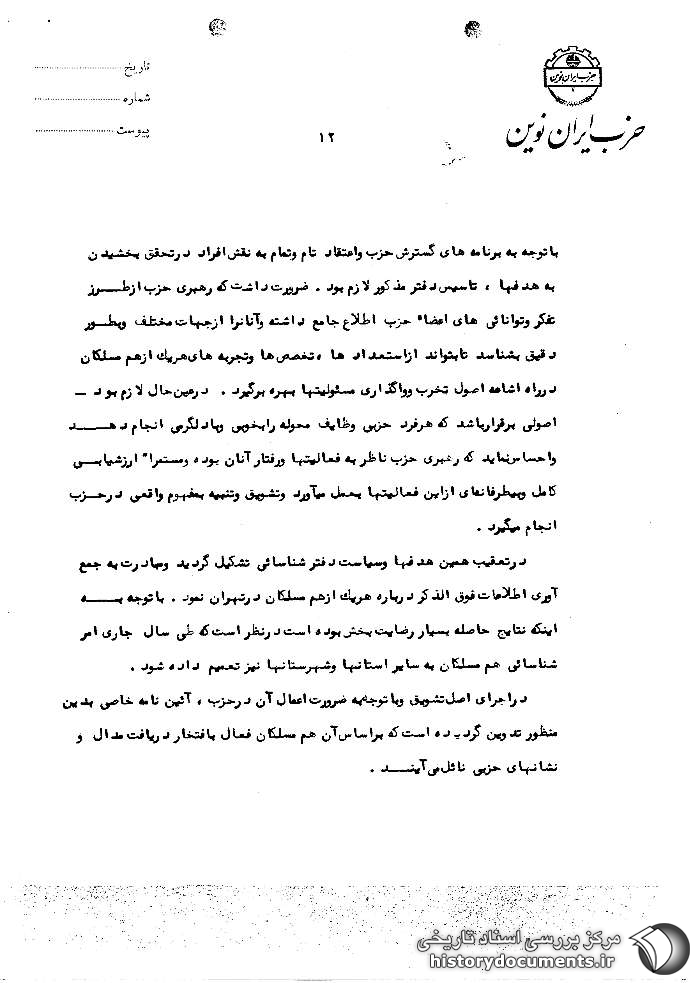 تاریخ
شماره
پیوست
حزب ایران نوین
حزب ایران نوین
۱۲
باتوجه به برنامه های گسترش حزب واعتقاد تام وتمام به نقش افراد درتحقق بخشیدن
به هدفها ، تاسیس دفتر مذکور لازم بود . ضرورت داشت که رهبری حزب ازطـــرز
تفکر وتوانائی های اعضاء حزب اطلاع جامع داشته وآنانرا ازجهات مختلف وبطـور
دقیق بشناسد تابتواند ازاستعداد ها ،تخصص‌ها وتجربه های‌هریک ازهم مسلکان
درراه اشاعه اصول تحزب وواگذاری مسئولیتها بهره برگیرد . درعین‌حال لازم بود –
اصولی برقرارباشد که هرفرد حزبی وظایف محوله رابخوبی وبادلگرمی انجام دهـــد
واحساس‌نماید که رهبری حزب ناظر به فعالیتها ورفتار آنان بوده ومستمرا" ارزشیابـی
کامل وبیطرفانه‌ای ازاین فعالیتها بعمل میآورد وتشویق وتنبیه بمفهوم واقعی درحـزب
انجام میگیرد .
درتعقیب همین هدفها وسیاست دفتر شناسائی تشکیل گردید ومبادرت به جمع
آوری اطلاعات فوق الذکر درباره هریک ازهم مسلکان درتهران نمود . باتوجه بـــه
اینکه نتایج حاصله بسیار رضایت بخش بوده است درنظر است که طی سال جاری امر
شناسائی هم مسلکان به سایر استانها وشهرستانها نیز تعمیم داده شود .
دراجرای اصل تشویق وباتوجه‌به ضرورت اعمال آن درحزب ، آئین نامه خاصی بدین
منظور تدوین گردیده است که براساس آن هم مسلکان فعال بافتخار دریافت مدال و
نشانهای حزبی نائل می‌آینــد .
مرکز بررسی اسناد تاریخی
historydocuments.ir